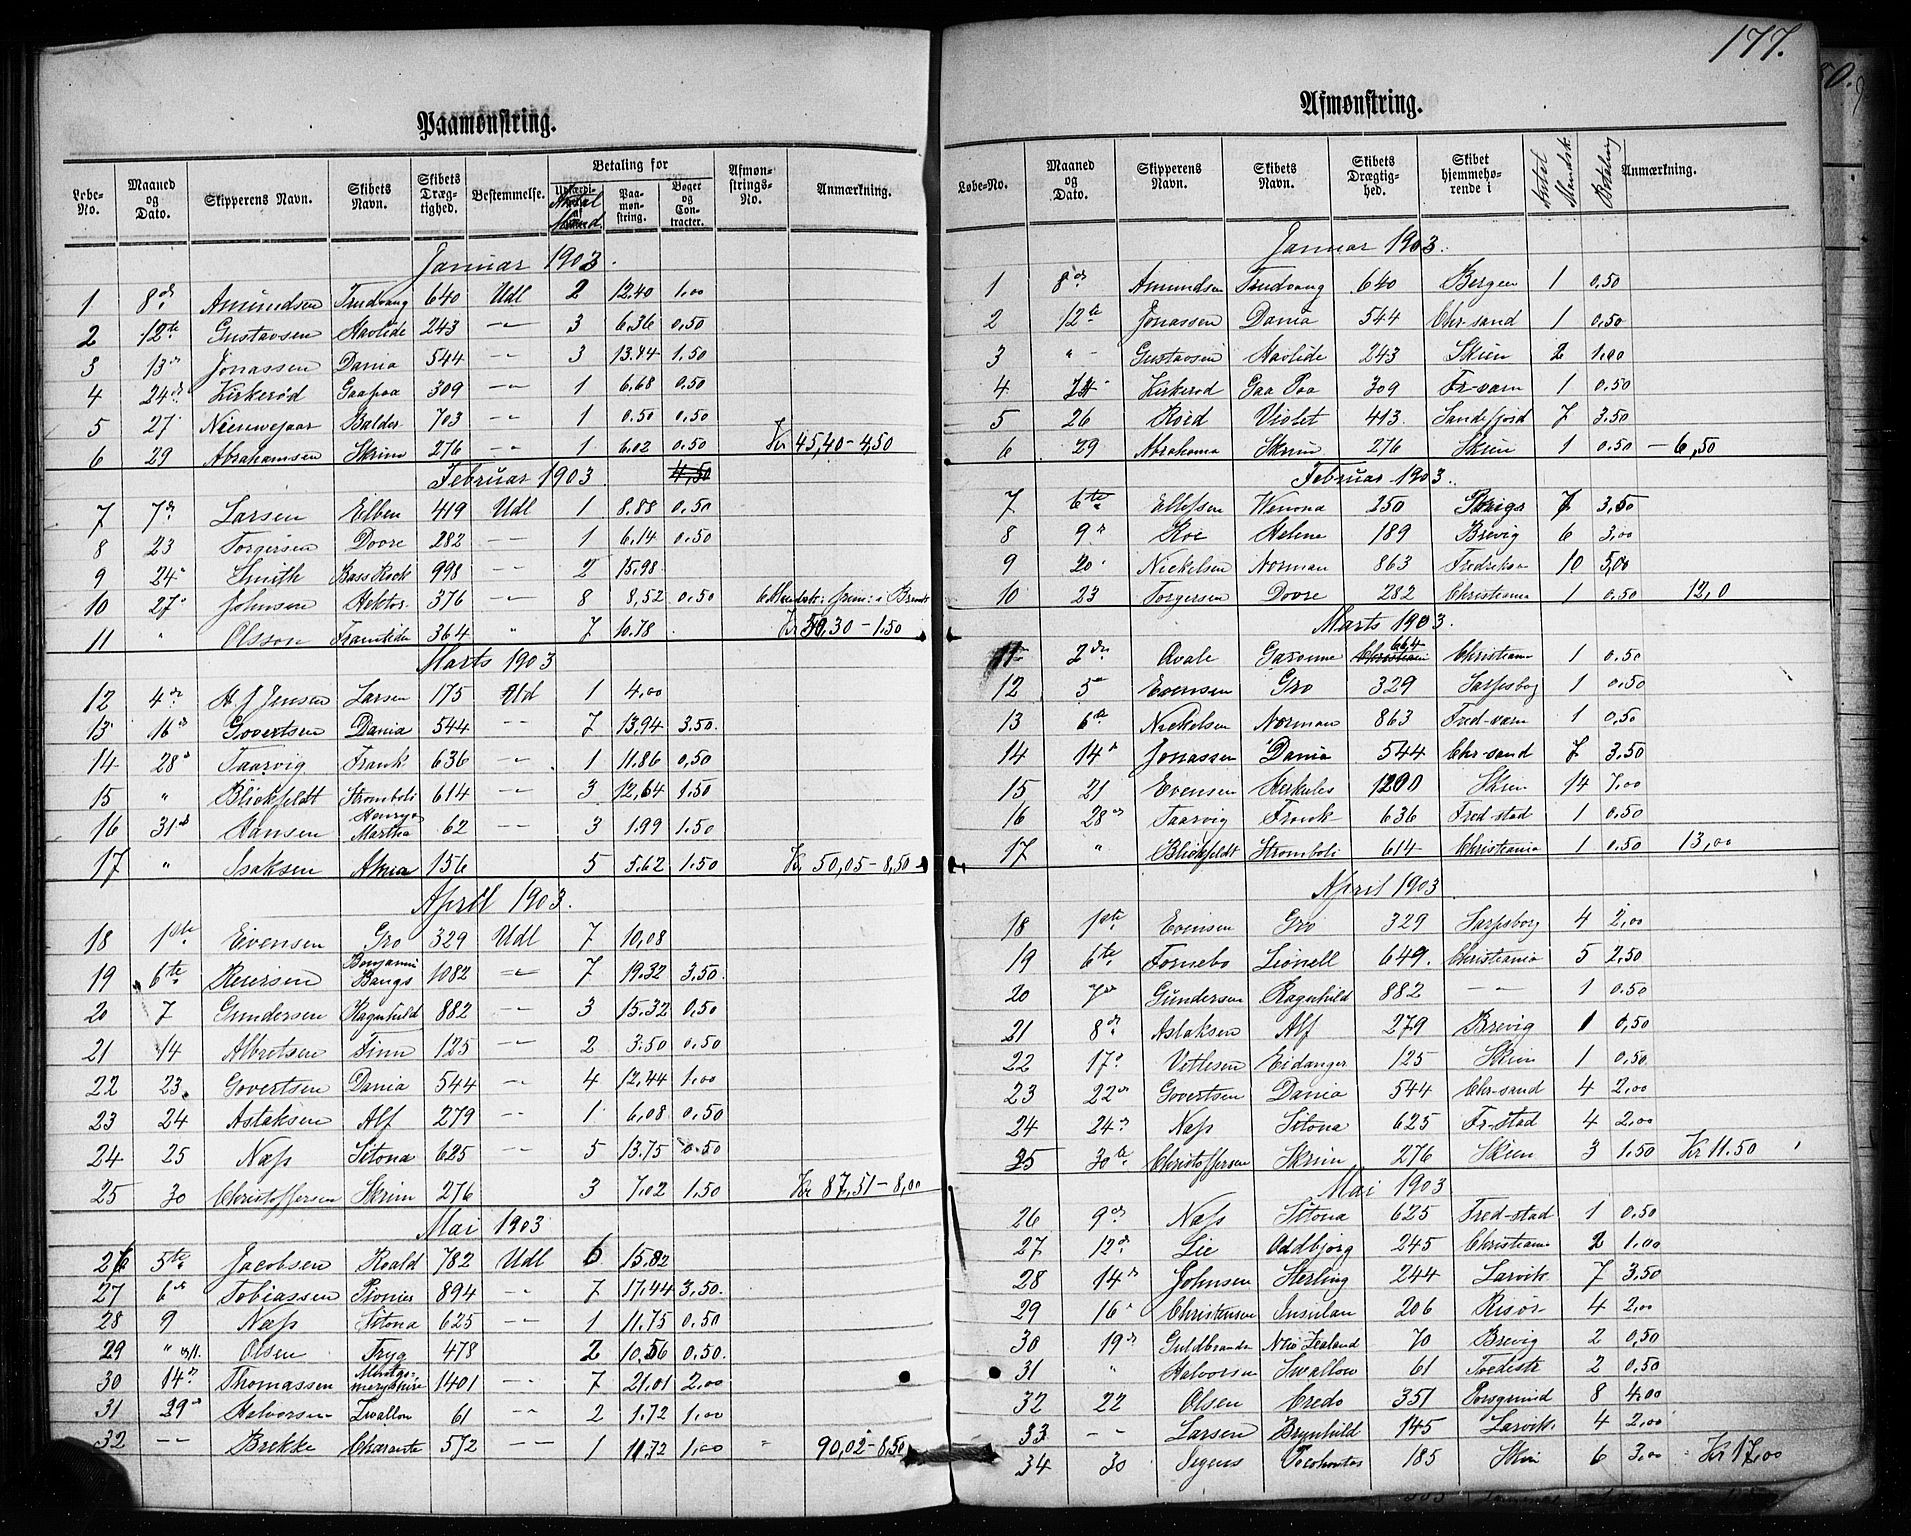 177.
Paamønstring.
Løbe-No. Maaned og Dato. Skipperens Navn. Skibets Navn. Skibets Drægtighed. Bestemmelse. Betaling for Antal Mand Paamønstring. Bøger og Contracter. Afmønstrings-No. Anmærkning.
Januar 1903.
1 8de Amundsen Trudvang 640 Udl 2 12.40 1,00
2 12te Gustavsen Havlide 243 -"- 3 6,36 0,50
3 13de Jonassen Dania 544 -"- 3 13.94 1,50
4 24de Kirkerød Gaapaa 309 -"- 1 6,68 0,50
5 27 Nieuwejaar Balder 703 -"- 1 0.50 0,50
6 29 Abrahamsen Skrim 276 -"- 1 6.02 0,50 Kr 45,40 - 4,50
Februar 1903. 4,50
7 7de Larsen Elben 419 Udl 1 8.88 0,50
8 23 Torgersen Dovre 282 -"- 1 6,14 0,50
9 24de Smith Bass Rock 998 -"- 2 15,98
10 27de Johnsen Hektor 376 -"- 8 8,52 0,50
11 " Olsson Framtida 364 " 7 10.78 Kr 50,30 - 1,50
Marts 1903
12 4de H J Jensen Larsen 175 Ud 1 4,00
13 16de Govertsen Dania 544 -"- 7 13,94 3,50
14 28de Taarvig Frank 636 -"- 1 11.86 0,50
15 " Blickfeldt Stromboli 614 -"- 3 12,64 1,50
16 31de Hansen Henry o Martha 62 -"- 3 1.99 1,50
17 " Isaksen Anna 156 5 5.62 1.50 Kr. 50,05 - 8,50
April 1903.
18 1ste Eivensen Gro 329 Udl 7 10,08
19 6te Reiersen Benjamin Bangs 1082 -"- 7 19.32 3,50
20 7 Gundersen Ragnhild 882 -"- 3 15.32 0,50
21 14 Albretsen Finn 125 -"- 2 3.50 0.50
22 23. Govertsen Dania 544 -"- 4 12,44 1,00
23 24 Aslaksen Alf 279 -"- 1 6,08 0,50
24 25 Næss Sitona 625 -"- 5 13.75 0.50
25 30 Christoffersen Skrim 276 3 7,02 1,50 Kr 87,51 - 8,00
Mai 1903
26 5te Jacobsen Roald 782 Udl 6 15.82
27 6te Tobiassen Pionier 894 -"- 7 17,44 3,50.
28 9 Næss Sitona 625 -"- 1 11.75 0.50
29 " Olsen Tryg 478 2 10.56 0,50.
30 14de Thomassen Montgomeryshire 1401 -"- 7 21.01 2,00
31 29de Halvorsen Swallow 61 -"- 2 1.72 1,00
32 -- Brekke Charente 572 -"- 1 11.72 1,00 " 90,02 - 8,50
Afmønstring.
Løbe-No. Maaned og Dato. Skipperens Navn. Skibets Navn. Skibets Drægtighed. Skibet hjemmehørende i Antal Mandsk. Betaling Anmærkning.
Januar 1903.
1 8de Amundsen Trudvang 640 Bergen 1 0.50
2 12te Jonassen Dania 544 Chr-sand 1 0.50
3 "- Gustavsen Havlide 243 Skien 2 1,00
4 24 Kirkerød Gaa Paa 309 Fr-værn 1 0.50
5 26 Roed Violet 413 Sandefjord 7 3.50
6 29 Skrim 276 Skien 1 0.50 - 6,50
Februar 1903.
7 6te Ellefsen Wenona 250 7 3,50
8 9de Roe Helene 189 Brevig 6 3,00
9 20de Nickelsen Norman 863 10 5,00
10 23 Torgersen Dovre 282 Christiania 1 0.50 12,0
Marts 1903.
11 2den Avale Garonne 664 Christiania 1 0.50
12 5te Evensen Gro 329 Sarpsborg 1 0,50
13 6te Nickelsen Norman 863 Fred-værn 1 0.50
14 14de Jonassen Dania 544 Chr-sand 7 3.50
15 21 Evensen Herkules 1200 Skien 14 7,00
16 28de Taarvig Frank 636 Fred-stad 1 0.50
17 " Blickfeldt Stromboli 614 Christiania 1 0.50 13,00
April 1903
18 1ste Evensen Gro 329 Sarpsborg 4 2,00
19 6te Fornebo Lionell 649. Christiania 5 2,50
20 7de Gundersen Ragnhild 882 -"- 1 0.50
21 8de Aslaksen Alf 279 Brevig 1 0,50
22 17de Vetlesen Eidanger 125 Skien 1 0.50
23 22de Govertsen Dania 544 Chr-sand 4 2,00
24 24de Næss Sitona 625 Fr-stad 4 2,00
25 30te Christoffersen Skrim 276 Skien 3 1,50 Kr 11.50
Mai 1903
26 9de Næss Sitona 625 Fred-stad 1 0.50
27 12de Lie Oddbjørg 245 Christiania 2 1,00
28 14de Johnsen Sterling 244 Larvik 7 3,50
29 16de Christensen Insulan 206 Risør 4 2,00
30 19de New Zealand 70 Brevig 2 0,50
31 " Halvorsen Swallow 61 Tvedestr 2 0.50
32 22 Olsen Credo 351 Porsgrund 8 4.00
33 -- Larsen Brynhild 145 Larvik 4 2,00
34 30 Segens Pocohontas 185 Skien 6 3,00 Kr 17,00